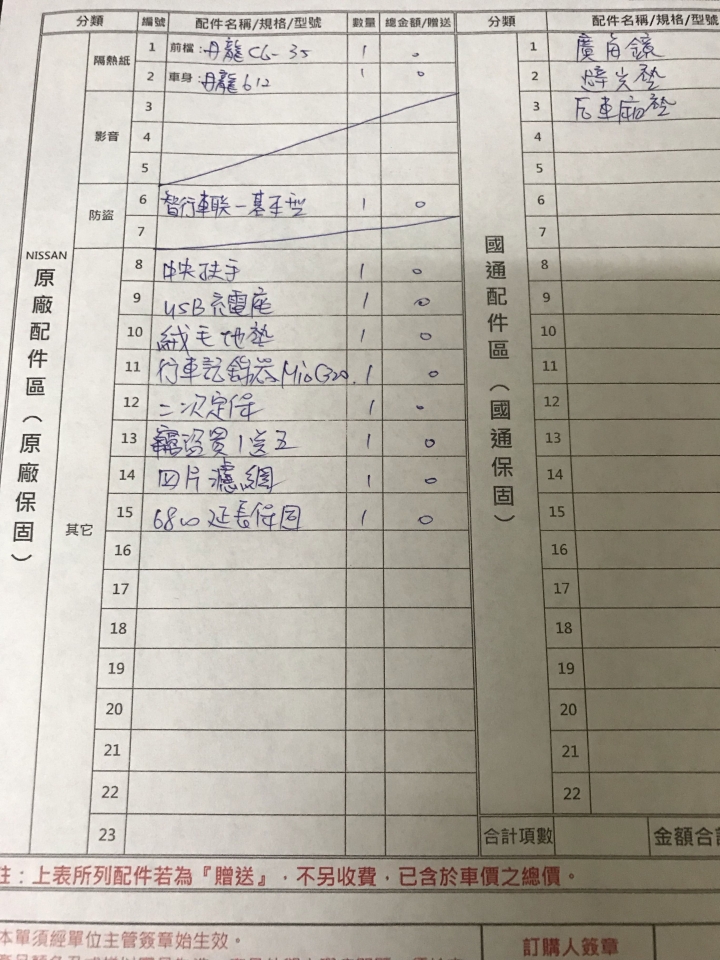 分類 編號 配件名稱/規格/型號 數量 總金額/贈送 分類 配件名稱/規格/型號
NISSAN
原廠配件區（原廠保固）
隔熱紙
1 前檔：丹龍CG-35 1 0
2 車身：丹龍612 1 0
影音
3
4
5
防盜
6 智行車联一基本型 1 0
7
其它
8 中央扶手 1 0
9 USB充電座 1 0
10 絨毛地墊 1 0
11 行車記錄器 Mio C320. 1 0
12 二次定保 1 0
13 買1送五 1 0
14 四片濾網 1 0
15 6800延長保固 1 0
16
17
18
19
20
21
22
23
國通配件區（國通保固）
1 廣角鏡
2 避光墊
3 墊
4
5
6
7
8
9
10
11
12
13
14
15
16
17
18
19
20
21
22
合計項數 金額合
註：上表所列配件若為『贈送』，不另收費，已含於車價之總價。
本單須經單位主管簽章始生效。
訂購人簽章